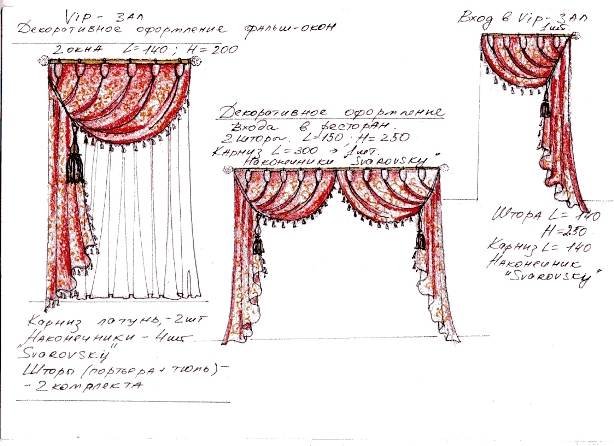 Vip - Зал
Декоративное оформление фальш-окон
2 окна L=140; H=200
Карниз латунь, - 2 шт
Наконечники - 4 шт
"Svarovskij"
Шторы (портьера + тюль) -
- 2 комплекта
Декоративное оформление
Входа в ресторан.
2 шторы. L=150 H=250
Карниз L=300 → 1 шт.
Наконечники "Svarovskij"
Вход в Vip-Зал
1 шт
Штора L=140
H=250
Карниз L=140
Наконечник
"Svarovskij"